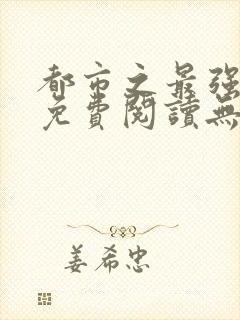 都市之最强
免費閱讀無
姜希忠